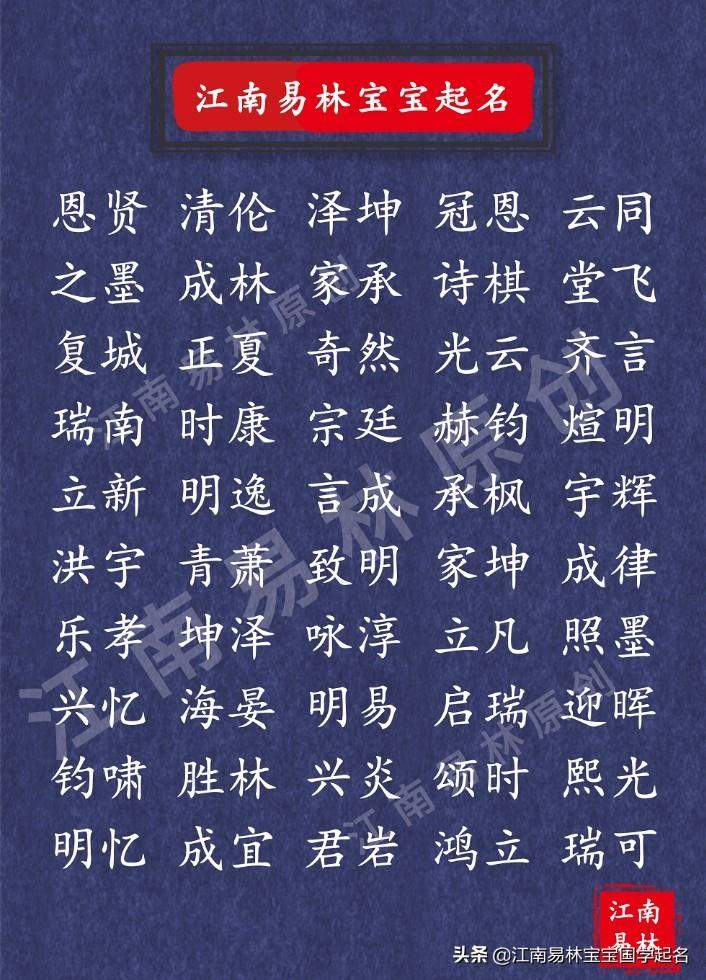 江南易林宝宝起名
恩贤 清伦 泽坤 冠恩 云同
之墨 成林 家承 诗棋 堂飞
复城 正夏 奇然 光云 齐言
瑞南 时康 宗廷 赫钧 煊明
立新 明逸 言成 承枫 宇辉
洪宇 青萧 致明 家坤 成律
乐孝 坤泽 咏淳 立凡 照墨
兴忆 海晏 明易 启瑞 迎晖
钧啸 胜林 兴炎 颂时 熙光
明忆 成宜 君岩 鸿立 瑞可
江南易林原创
江南易林原创
江南易林原创
江南
易林
头条 @江南易林宝宝国学起名